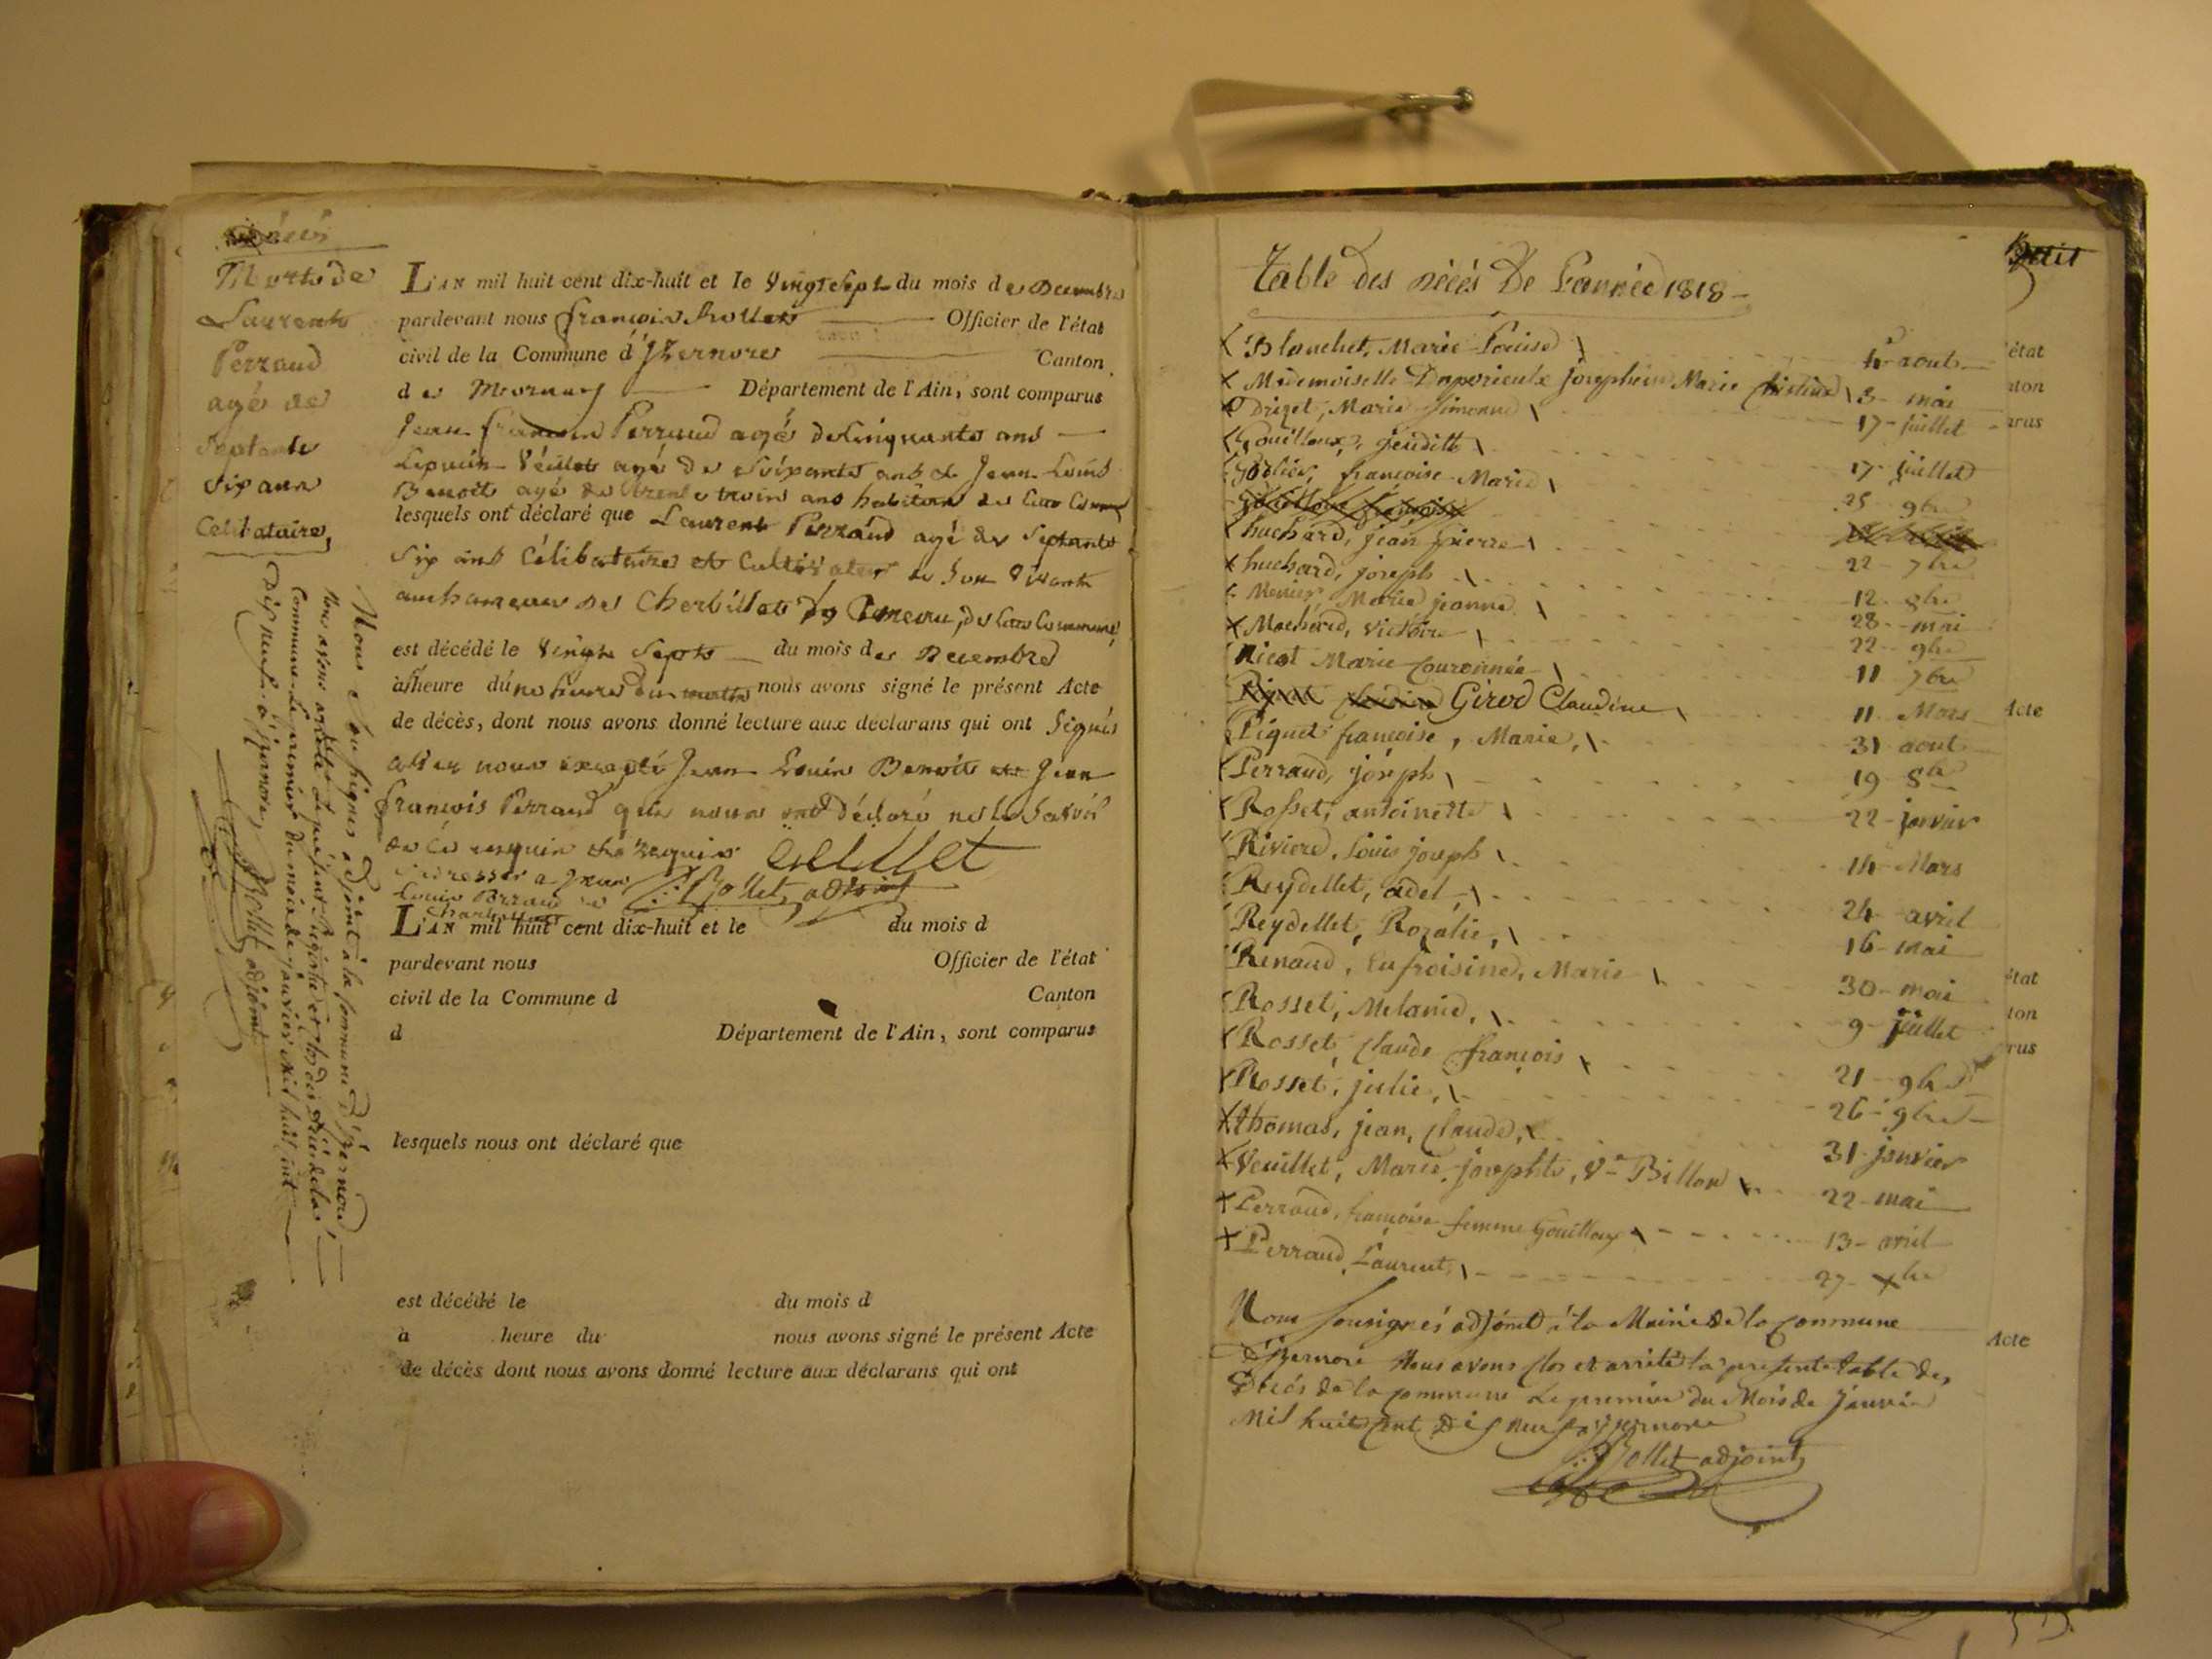 décès
Mort de
Laurent
Perraud
agé de
Septante
Six ans
Célibataire,
L'AN mil huit cent dix-huit et le Vingt Sept du mois de Decembre
pardevant nous François Rollet Officier de l'état
civil de la Commune d'Izernore Canton
de Département de l'Ain, sont comparus
Jean François Perraud agé de Cinquante ans
Veillet agé de Soixante ans et Jean Louis
Benoit agé de trente trois ans habitans de
lesquels ont déclaré que Laurent Perraud agé de Septante
Six ans Célibataire et Cultivateur de Son Vivant
au hameau de Charbillat de commune,
est décédé le Vingt Sept du mois de Decembre
à heure du nous avons signé le présent Acte
de décès, dont nous avons donné lecture aux déclarans qui ont Signés
avec nous excepté Jean Louis Benoit et Jean
François Perraud qui nous ont Déclaré ne le Savoir
de ce enquis et requis Veillet
S'adresser a Jean Rollet, adjoint
Louis Perraud
L'AN mil huit cent dix-huit et le du mois d
pardevant nous Officier de l'état
civil de la Commune d Canton
d Département de l'Ain, sont comparus
lesquels nous ont déclaré que
est décédé le du mois d
à heure du nous avons signé le présent Acte
de décès dont nous avons donné lecture aux déclarans qui ont
Nous Soussignés adjoint à la Commune d'Izernore,
Nous avons arrêté le présent Registre et clos des décès de la
Commune le premier du mois de janvier Mil huit cent
Dix neuf à Izernore, Rollet adjoint
Table des décés De L'année 1818
Blanchet, Marie Louise aout
Mademoiselle Douperieulx josephine Marie Christine 3 mai
Drizet, Marie Simonne 17 juillet
Gouilloux, jeuditt 17 juillet
françoise Marie 25 9bre
huchard, jean pierre 22 7bre
huchard, joseph 12 8bre
Menier, Marie jeanne 28 mai
Machard, Victoire 22 9bre
Nicot Marie Couronnée 11 7bre
Girod Claudine 11 Mars
Piquet françoise, Marie, 31 aout
Perraud, joseph 19 8bre
Rosset, antoinette 22 janvier
Riviere, Louis joseph 14 Mars
Reydellet, adel 24 avril
Reydellet, Rozalie, 16 mai
Renaud, Eufroisine, Marie 30 mai
Rosset, Melanie, 9 juillet
Rosset, Claude françois 21 9bre
Rosset, julie, 26 9bre
thomas, jean, Claude, 31 janvier
Veuillet, Marie, josephte, Ve Billon 22 mai
Perraud, françoise femme Gouilloux 13 avril
Perraud, Laurent, 27 Xbre
Nous Sousignés adjoint à la Mairie de la Commune
d'Izernore Nous avons Clos et arrêté la presente table des
décés de la Commune Le premier du Mois de janvier
Mil huit Cent Dix neuf a Izernore
Rollet adjoint
état
nton
arus
Acte
état
ton
rus
Acte